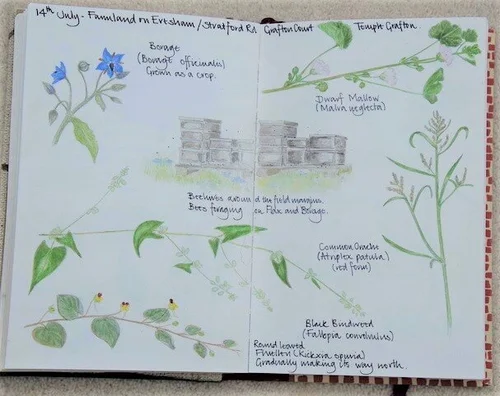 14th July - Farmland on Evesham / Stratford Rd Grafton Court Temple Grafton
Borage
(Borage officinalis)
Grown as a crop.
Dwarf Mallow
(Malva neglecta)
Beehives around the field margins.
Bees foraging on Flax and Borage.
Common Orache
(Atriplex patula)
(red form)
Black Bindweed
(Fallopia convolvulus)
Round leaved
Fluellen (Kickxia spuria)
Gradually making its way north.